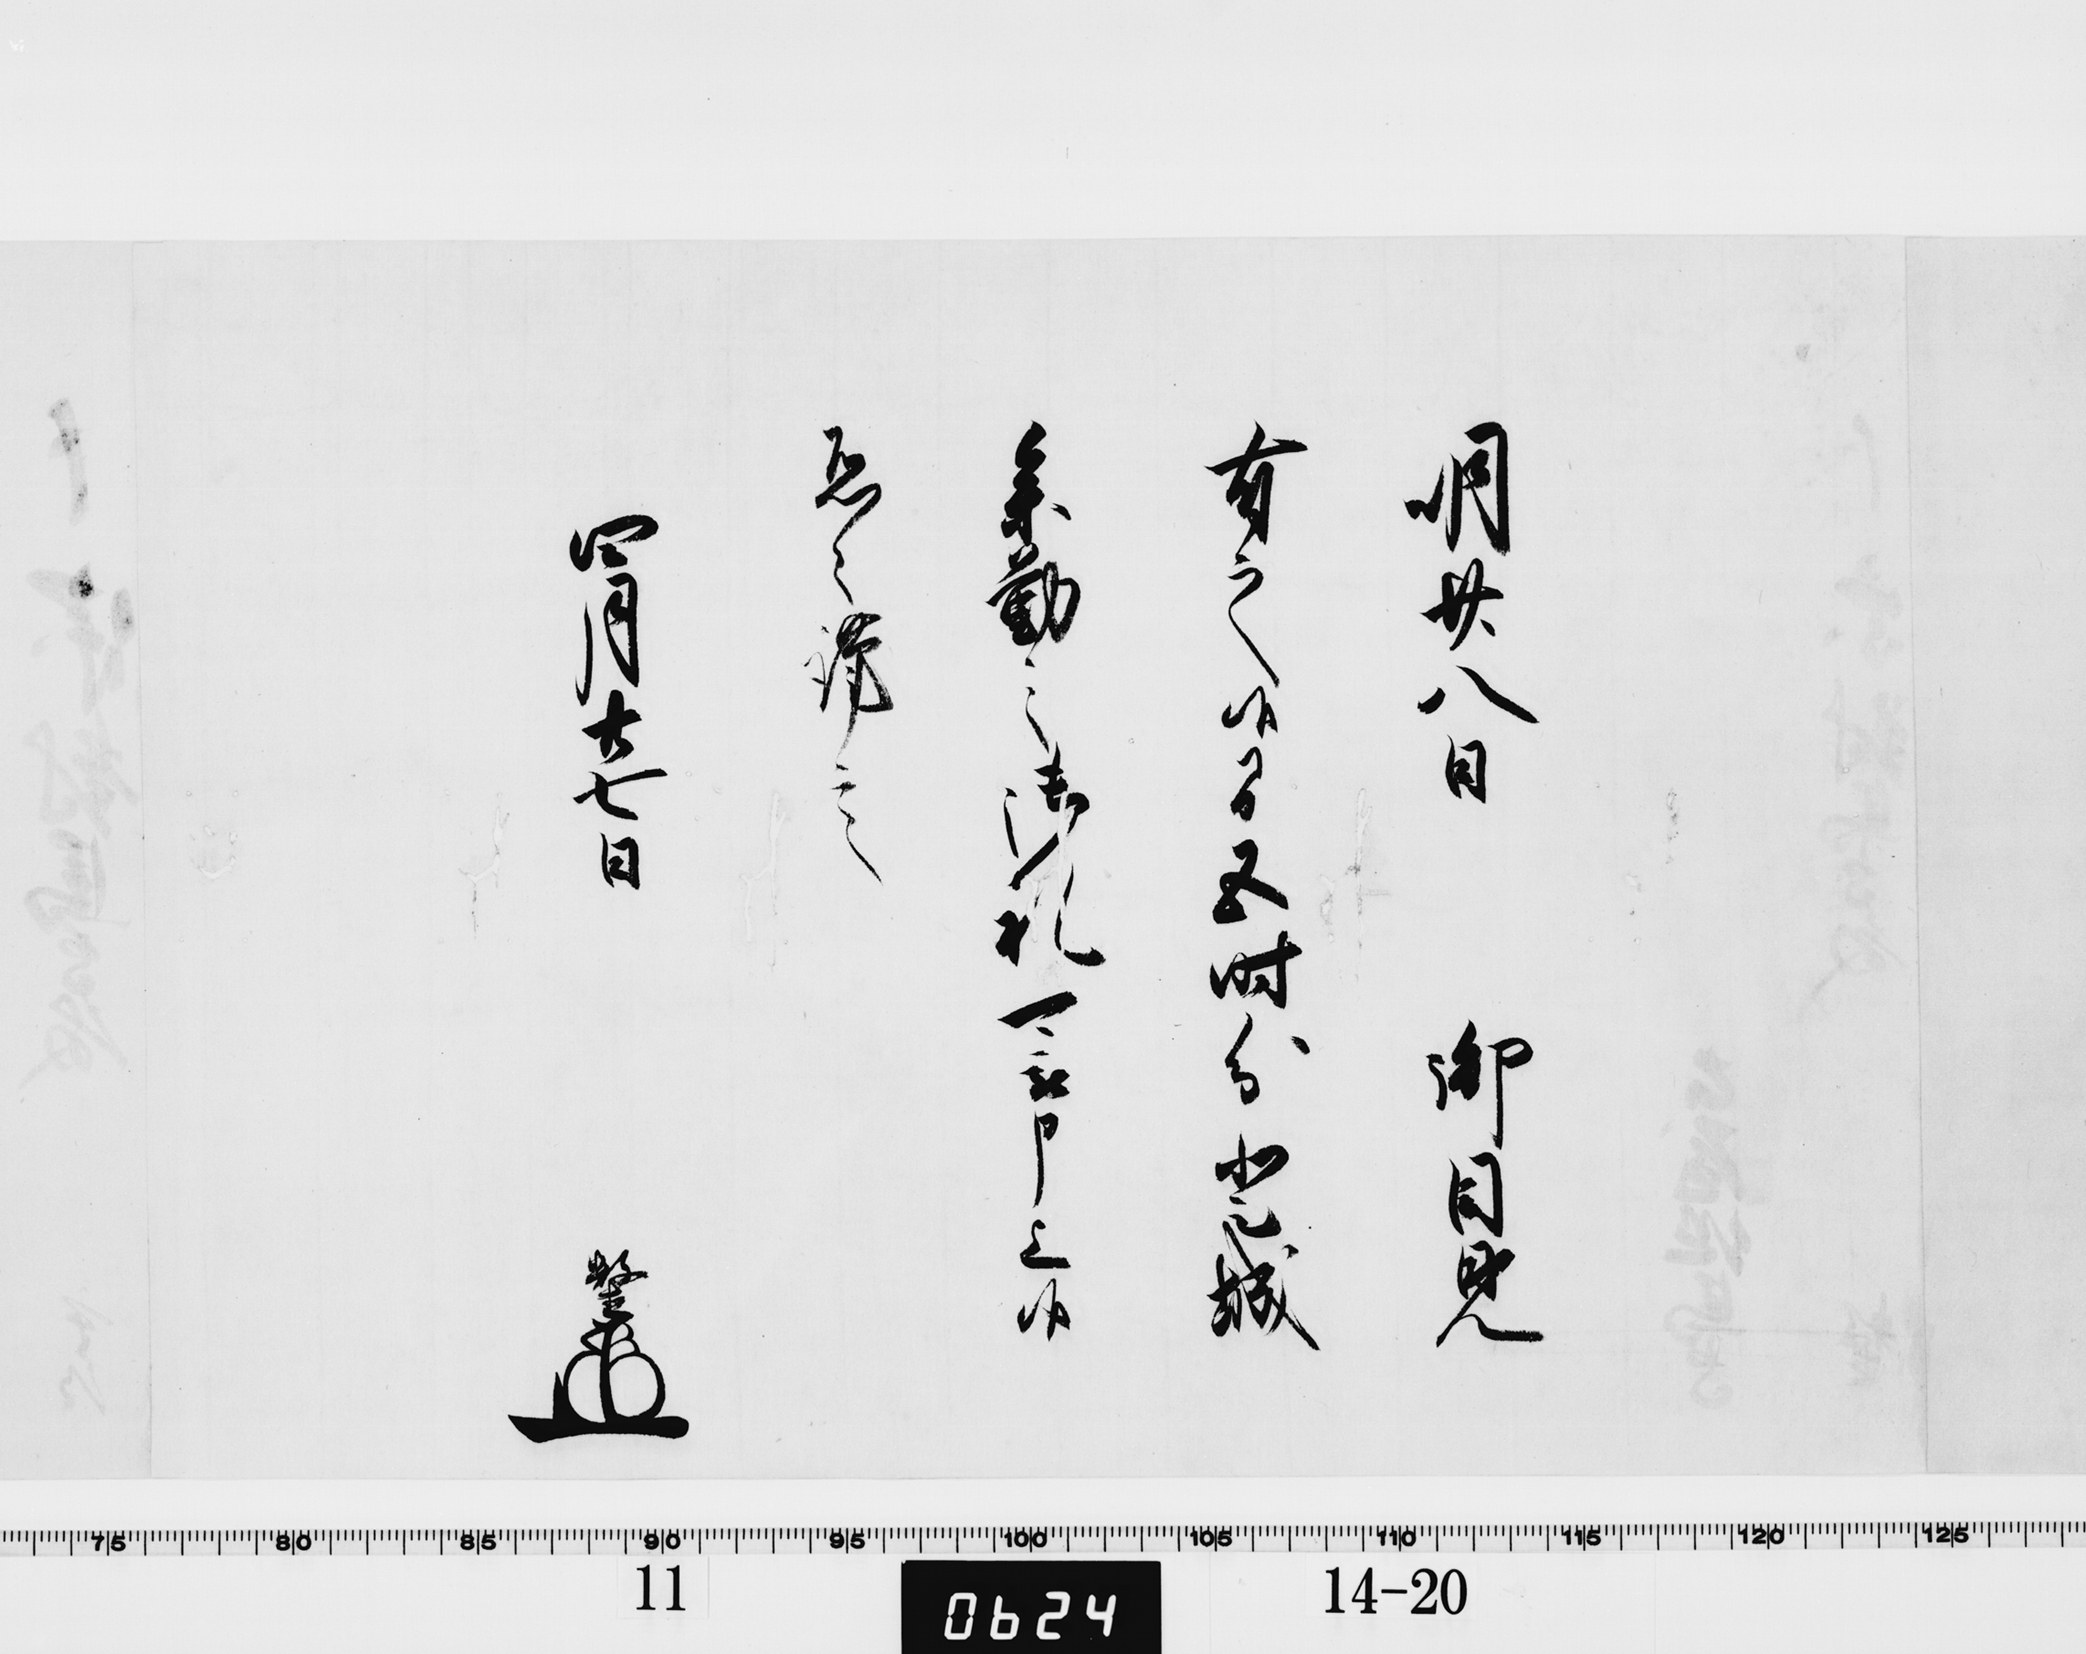 明廿八日　御目見
有之候間五時分登城
参勤之御礼可被申上候
恐々謹言
四月廿七日
75 80 85 90 95 100 105 110 115 120 125
11
0624
14-20